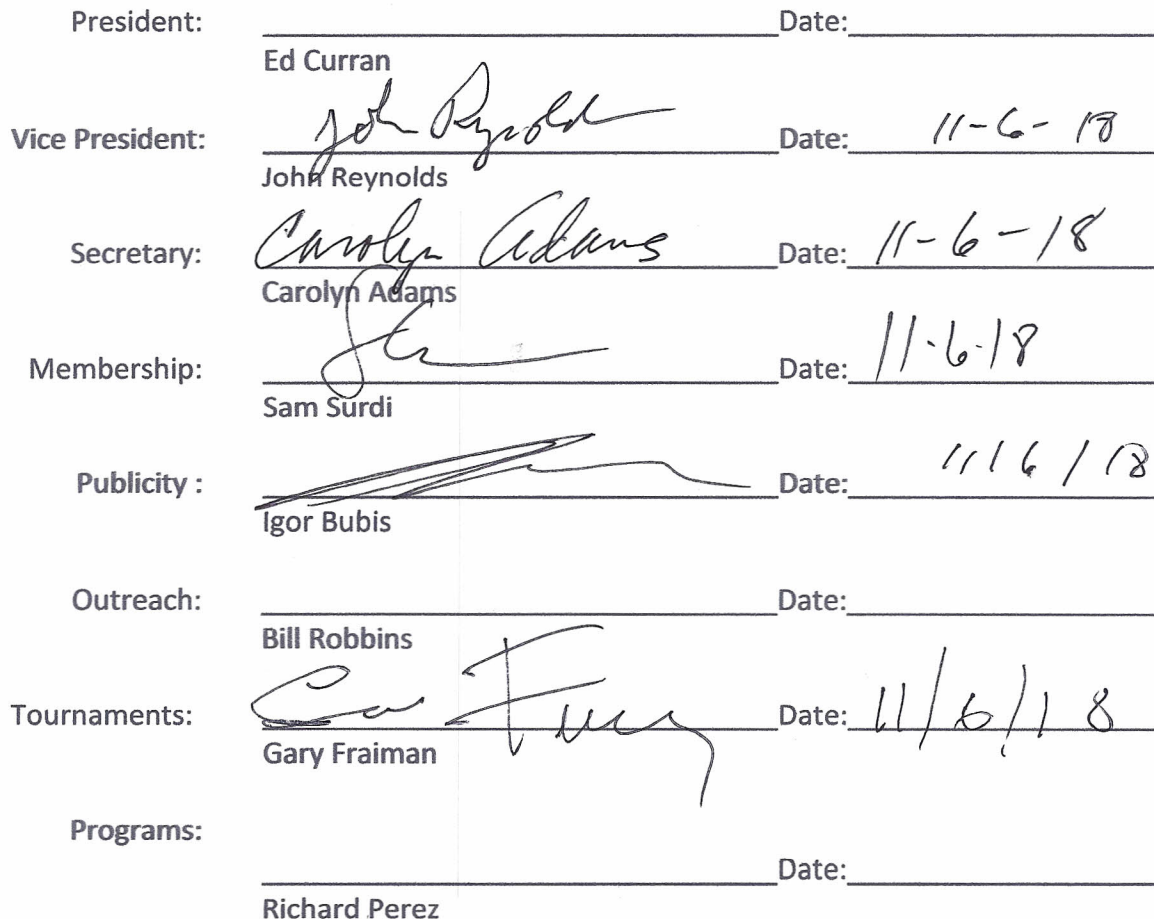 President: Date:
Ed Curran
Vice President: John Reynolds Date: 11-6-18
John Reynolds
Secretary: Carolyn Adams Date: 11-6-18
Carolyn Adams
Membership: Date: 11-6-18
Sam Surdi
Publicity : Date: 11/6/18
Igor Bubis
Outreach: Date:
Bill Robbins
Tournaments: Date: 11/6/18
Gary Fraiman
Programs:
Date:
Richard Perez